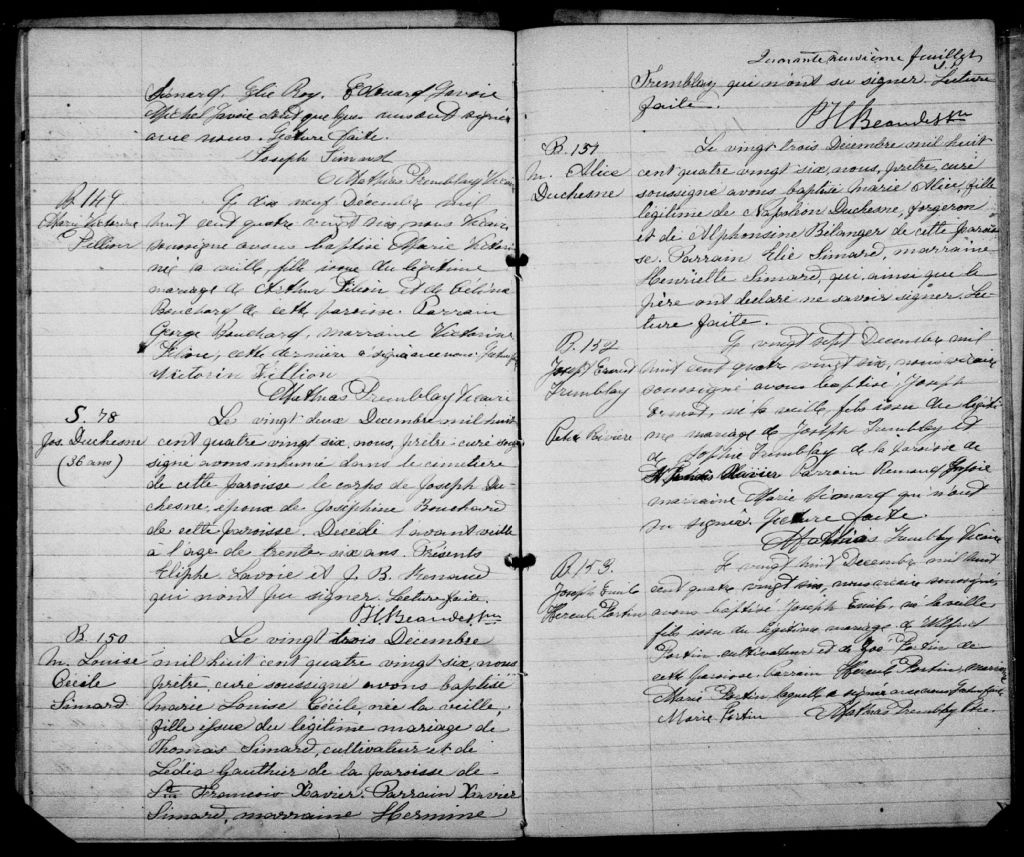 Simard, Elie Roy, Edouard Savoie
Michel Savoie dont quelques uns ont signé
avec nous Lecture faite.
Joseph Simard
Mathias Tremblay Vicaire
B. 149
Marie Victorine
Fillion
Le dix neuf Décembre mil
huit cent quatre vingt six, nous Vicaire
soussigné avons baptisé Marie Victori
née la veille, fille issue du légitime
mariage de Arthur Filion et de Célina
Bouchard de cette paroisse. Parrain
George Bouchard, marraine Victorine
Filion, cette dernière a signé avec nous. Lecture faite
Victorin Fillion
Mathias Tremblay Vicaire
S. 78
Jos. Duchesne
(36 ans)
Le vingt deux Décembre mil huit
cent quatre vingt six, nous, prêtre curé sous
signé avons inhumé dans le cimetière
de cette paroisse le corps de Joseph Du-
chesne, époux de Josephine Bouchard
de cette paroisse. Décédé l'avant veille
à l'âge de trente six ans. Présents
Eliphe Lavoie et J. B. Renaud
qui n'ont pu signer. Lecture faite.
B. 150
M. Louise
Cecile
Simard
Le vingt trois Décembre
mil huit cent quatre vingt six, nous
prêtre, curé soussigné avons baptisé
Marie Louise Cécile, née la veille,
fille issue du légitime mariage de
Thomas Simard, cultivateur et de
Lédia Gauthier de la paroisse de
St. Francois Xavier. Parrain Xavier
Simard, marraine Hermine
Quarante neuvième feuillet
Tremblay qui n'ont su signer. Lecture
faite.
B. 151
M. Alice
Duchesne
Le vingt trois Décembre mil huit
cent quatre vingt six, nous, prêtre, curé
soussigné avons baptisé Marie Alice, fille
légitime de Napoléon Duchesne, forgeron
et de Alphonsine Bélanger de cette parois
se. Parrain Elie Simard, marraine
Henriette Simard, qui, ainsi que le
père ont déclaré ne savoir signer. Lec-
ture faite.
B. 152
Joseph Ernest
Tremblay
Petite Rivière
Le vingt sept Décembre mil
huit cent quatre vingt six, nous vicaire
soussigné avons baptisé, Joseph
Ernest, né la veille, fils issu du légiti
me mariage de Joseph Tremblay et
de Sophie Tremblay de la paroisse de
Xavier Parrain Renaud
marraine Marie Simard qui n'ont
su signer. Lecture faite.
Mathias Tremblay Vicaire
B. 153.
Joseph Emile
Hercule Fortin
Le vingt huit Décembre mil huit
cent quatre vingt six, nous vicaire soussigné,
avons baptisé Joseph Emile, né la veille
fils issu du légitime mariage d'Wilfred
Fortin cultivateur et de Zoé Fortin de
cette paroisse. Parrain Hercule Fortin, marraine
Marie Fortin laquelle a signée avec nous. Lecture faite
Marie Fortin
Mathias Tremblay Vic.